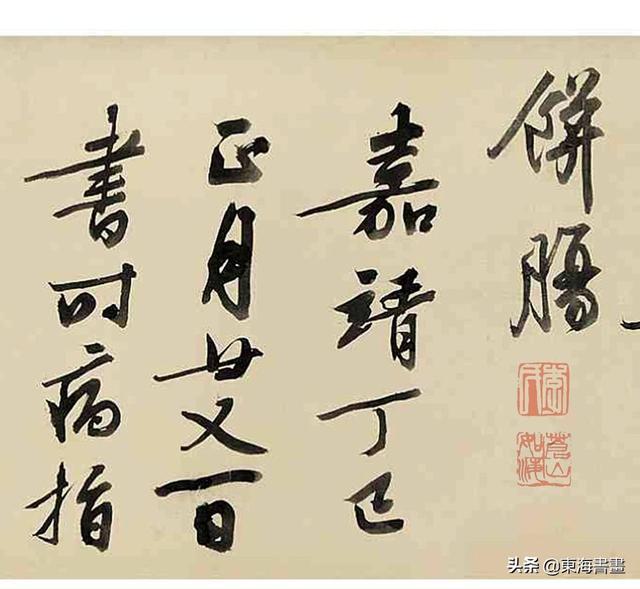 餅腸
嘉靖丁巳
正月廿又一日
書时病指
头条 @東海書畫